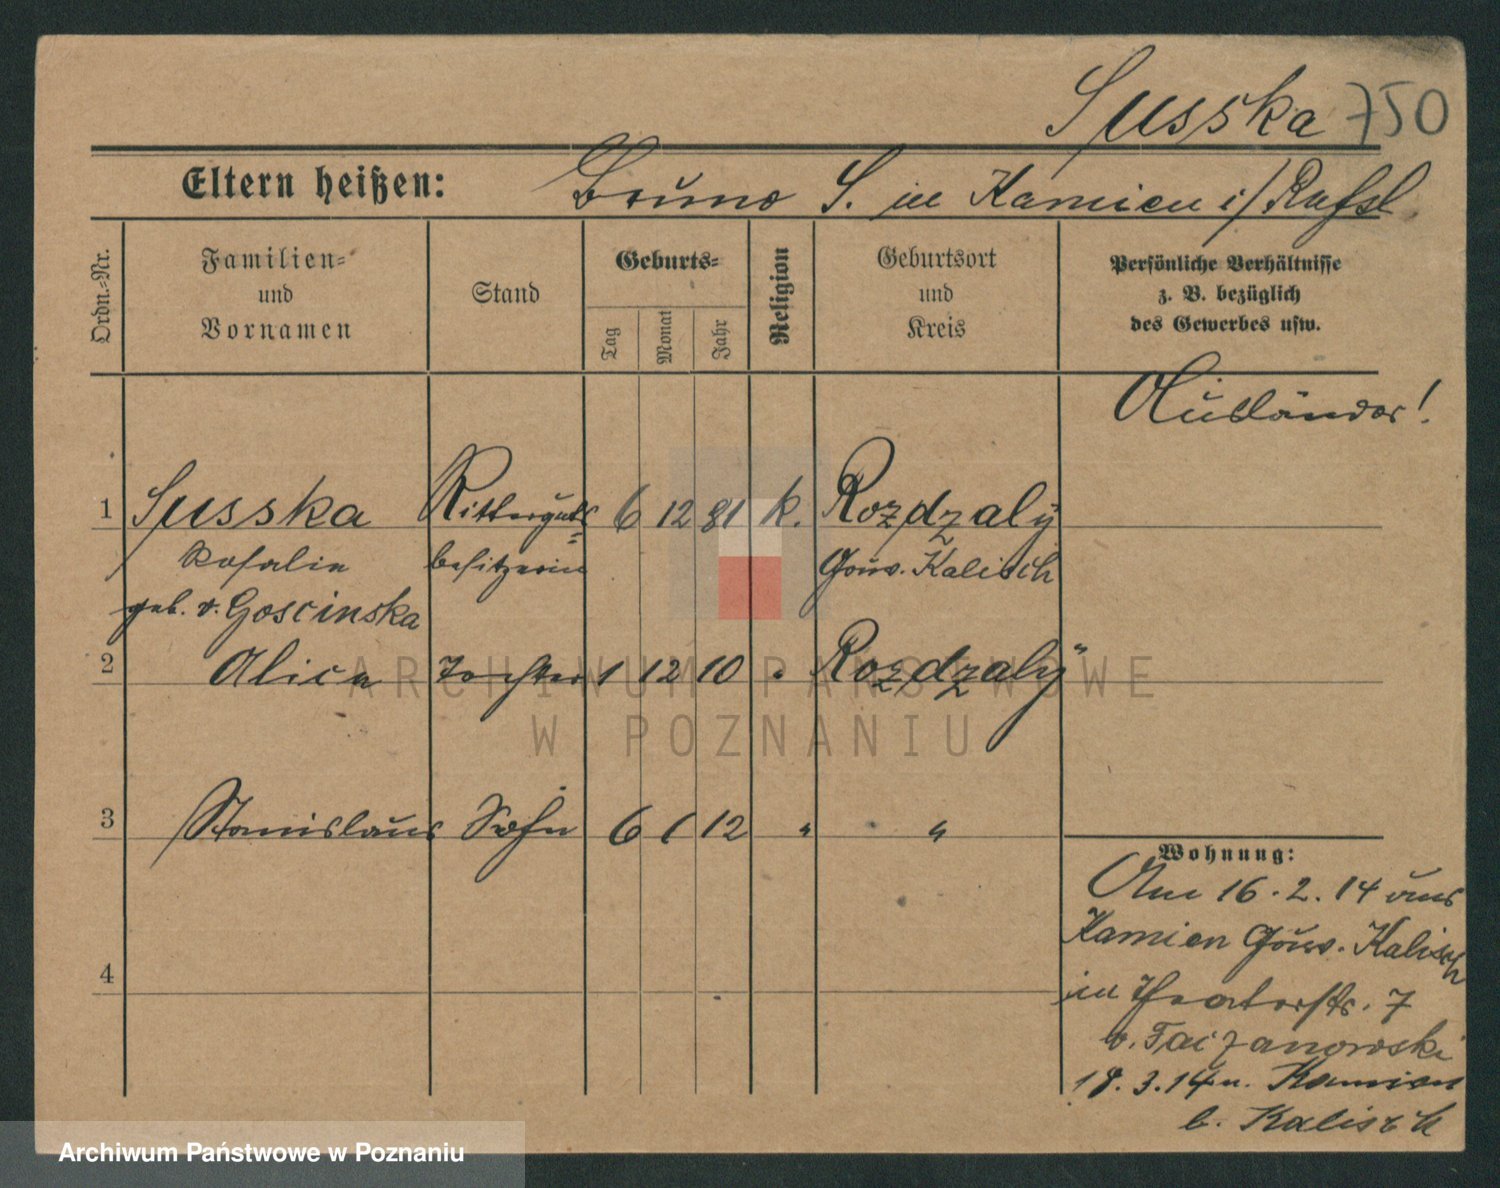 Susska 750
Eltern heißen: Bruno S. in Kamien i/Rußl
Ordn.-Nr.
Familien-
und
Vornamen
Stand
Geburts-
Tag
Monat
Jahr
Religion
Geburtsort
und
Kreis
Persönliche Verhältnisse
z. B. bezüglich
des Gewerbes usw.
Ausländer!
1 Susska Ritterguts= 6 12 81 k. Rozdzaly
Rosalie besitzerin Gouv. Kalisch
geb. v. Goscinska
2 Alice Tochter 1 12 10 " Rozdzaly
3 Stanislaus Sohn 6 1 12 " "
4
Wohnung:
Am 16.2.14 aus
Kamien Gouv. Kalisch
in Theaterstr. 7
b. Taczanowski
18.3.14 n. Kamien
b. Kalisch
ARCHIWUM PAŃSTWOWE
W POZNANIU
Archiwum Państwowe w Poznaniu